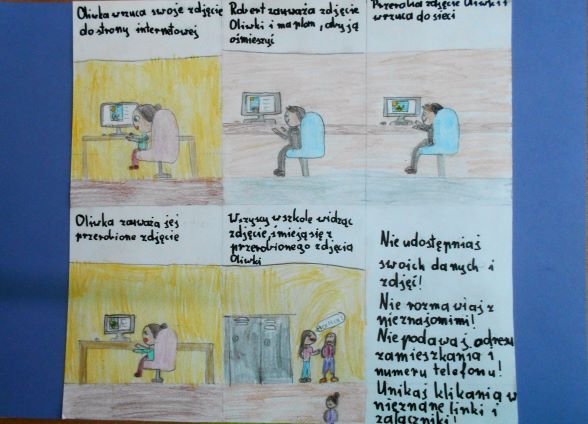 Oliwka wrzuca swoje zdjęcie
do strony internetowej
Robert zauważa zdjęcie
Oliwki i ma plan, aby ją
ośmieszyć
Przerabia zdjęcie Oliwki i
wrzuca do sieci
Oliwka zauważa jej
przerobione zdjęcie
Wszyscy w szkole widząc
zdjęcie, śmieją się z
przerobionego zdjęcia
Oliwki
Nie udostępniaj
swoich danych i
zdjęć!
Nie rozmawiaj z
nieznajomimi!
Nie podawaj adresu
zamieszkania i
numeru telefonu!
Unikaj klikania w
nieznane linki i
załączniki!